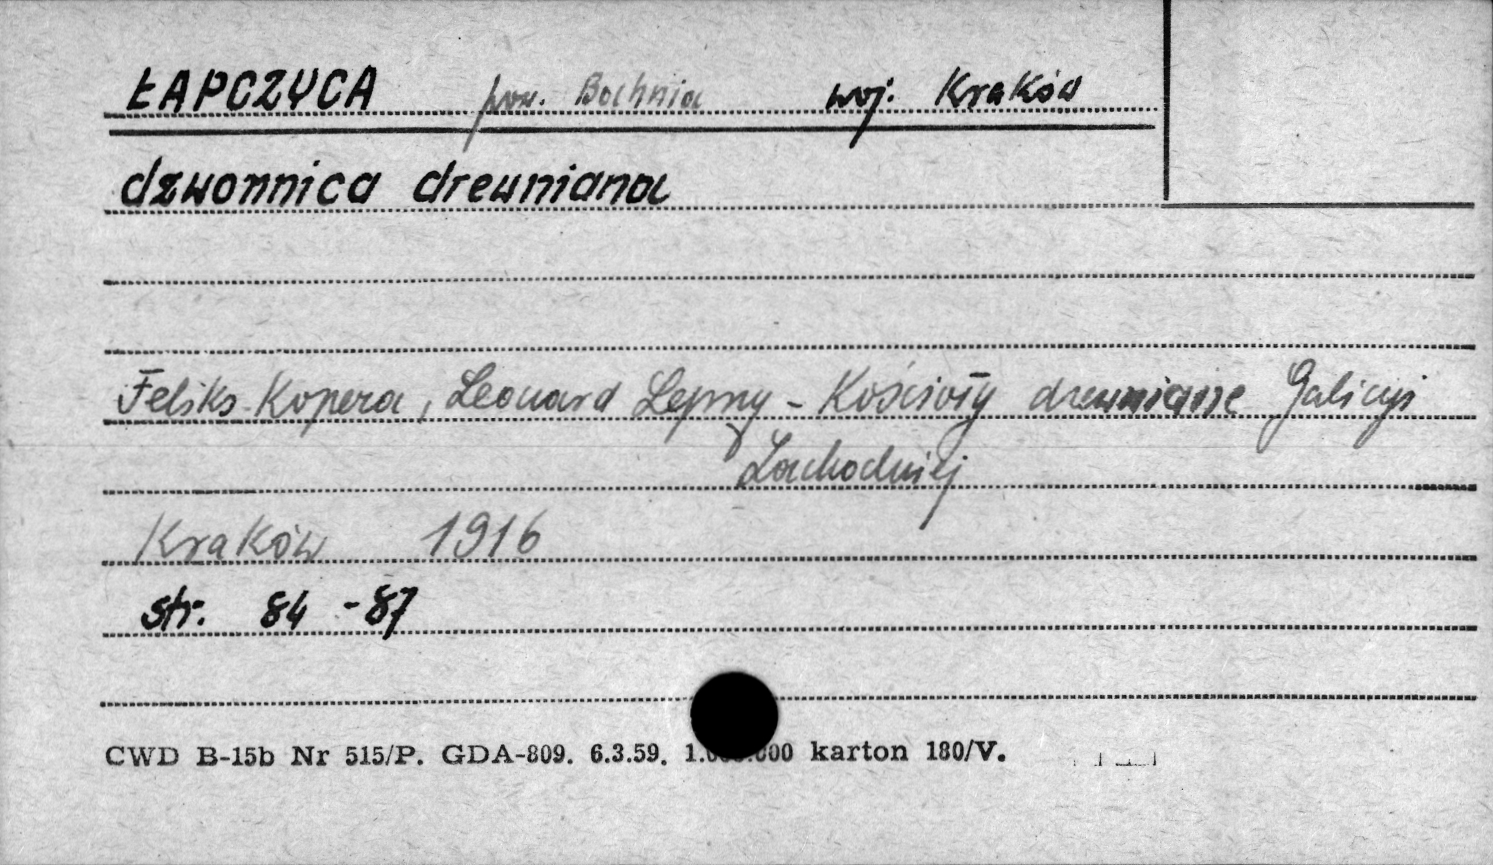 ŁAPCZYCA pow. Bochnia woj. Kraków
dzwonnica drewniana
Feliks Kopera, Leonard Lepszy - Kościoły drewniane Galicyi
Zachodniej
Kraków 1916
str. 84 - 87
CWD B-15b Nr 515/P. GDA-809. 6.3.59. karton 180/V.